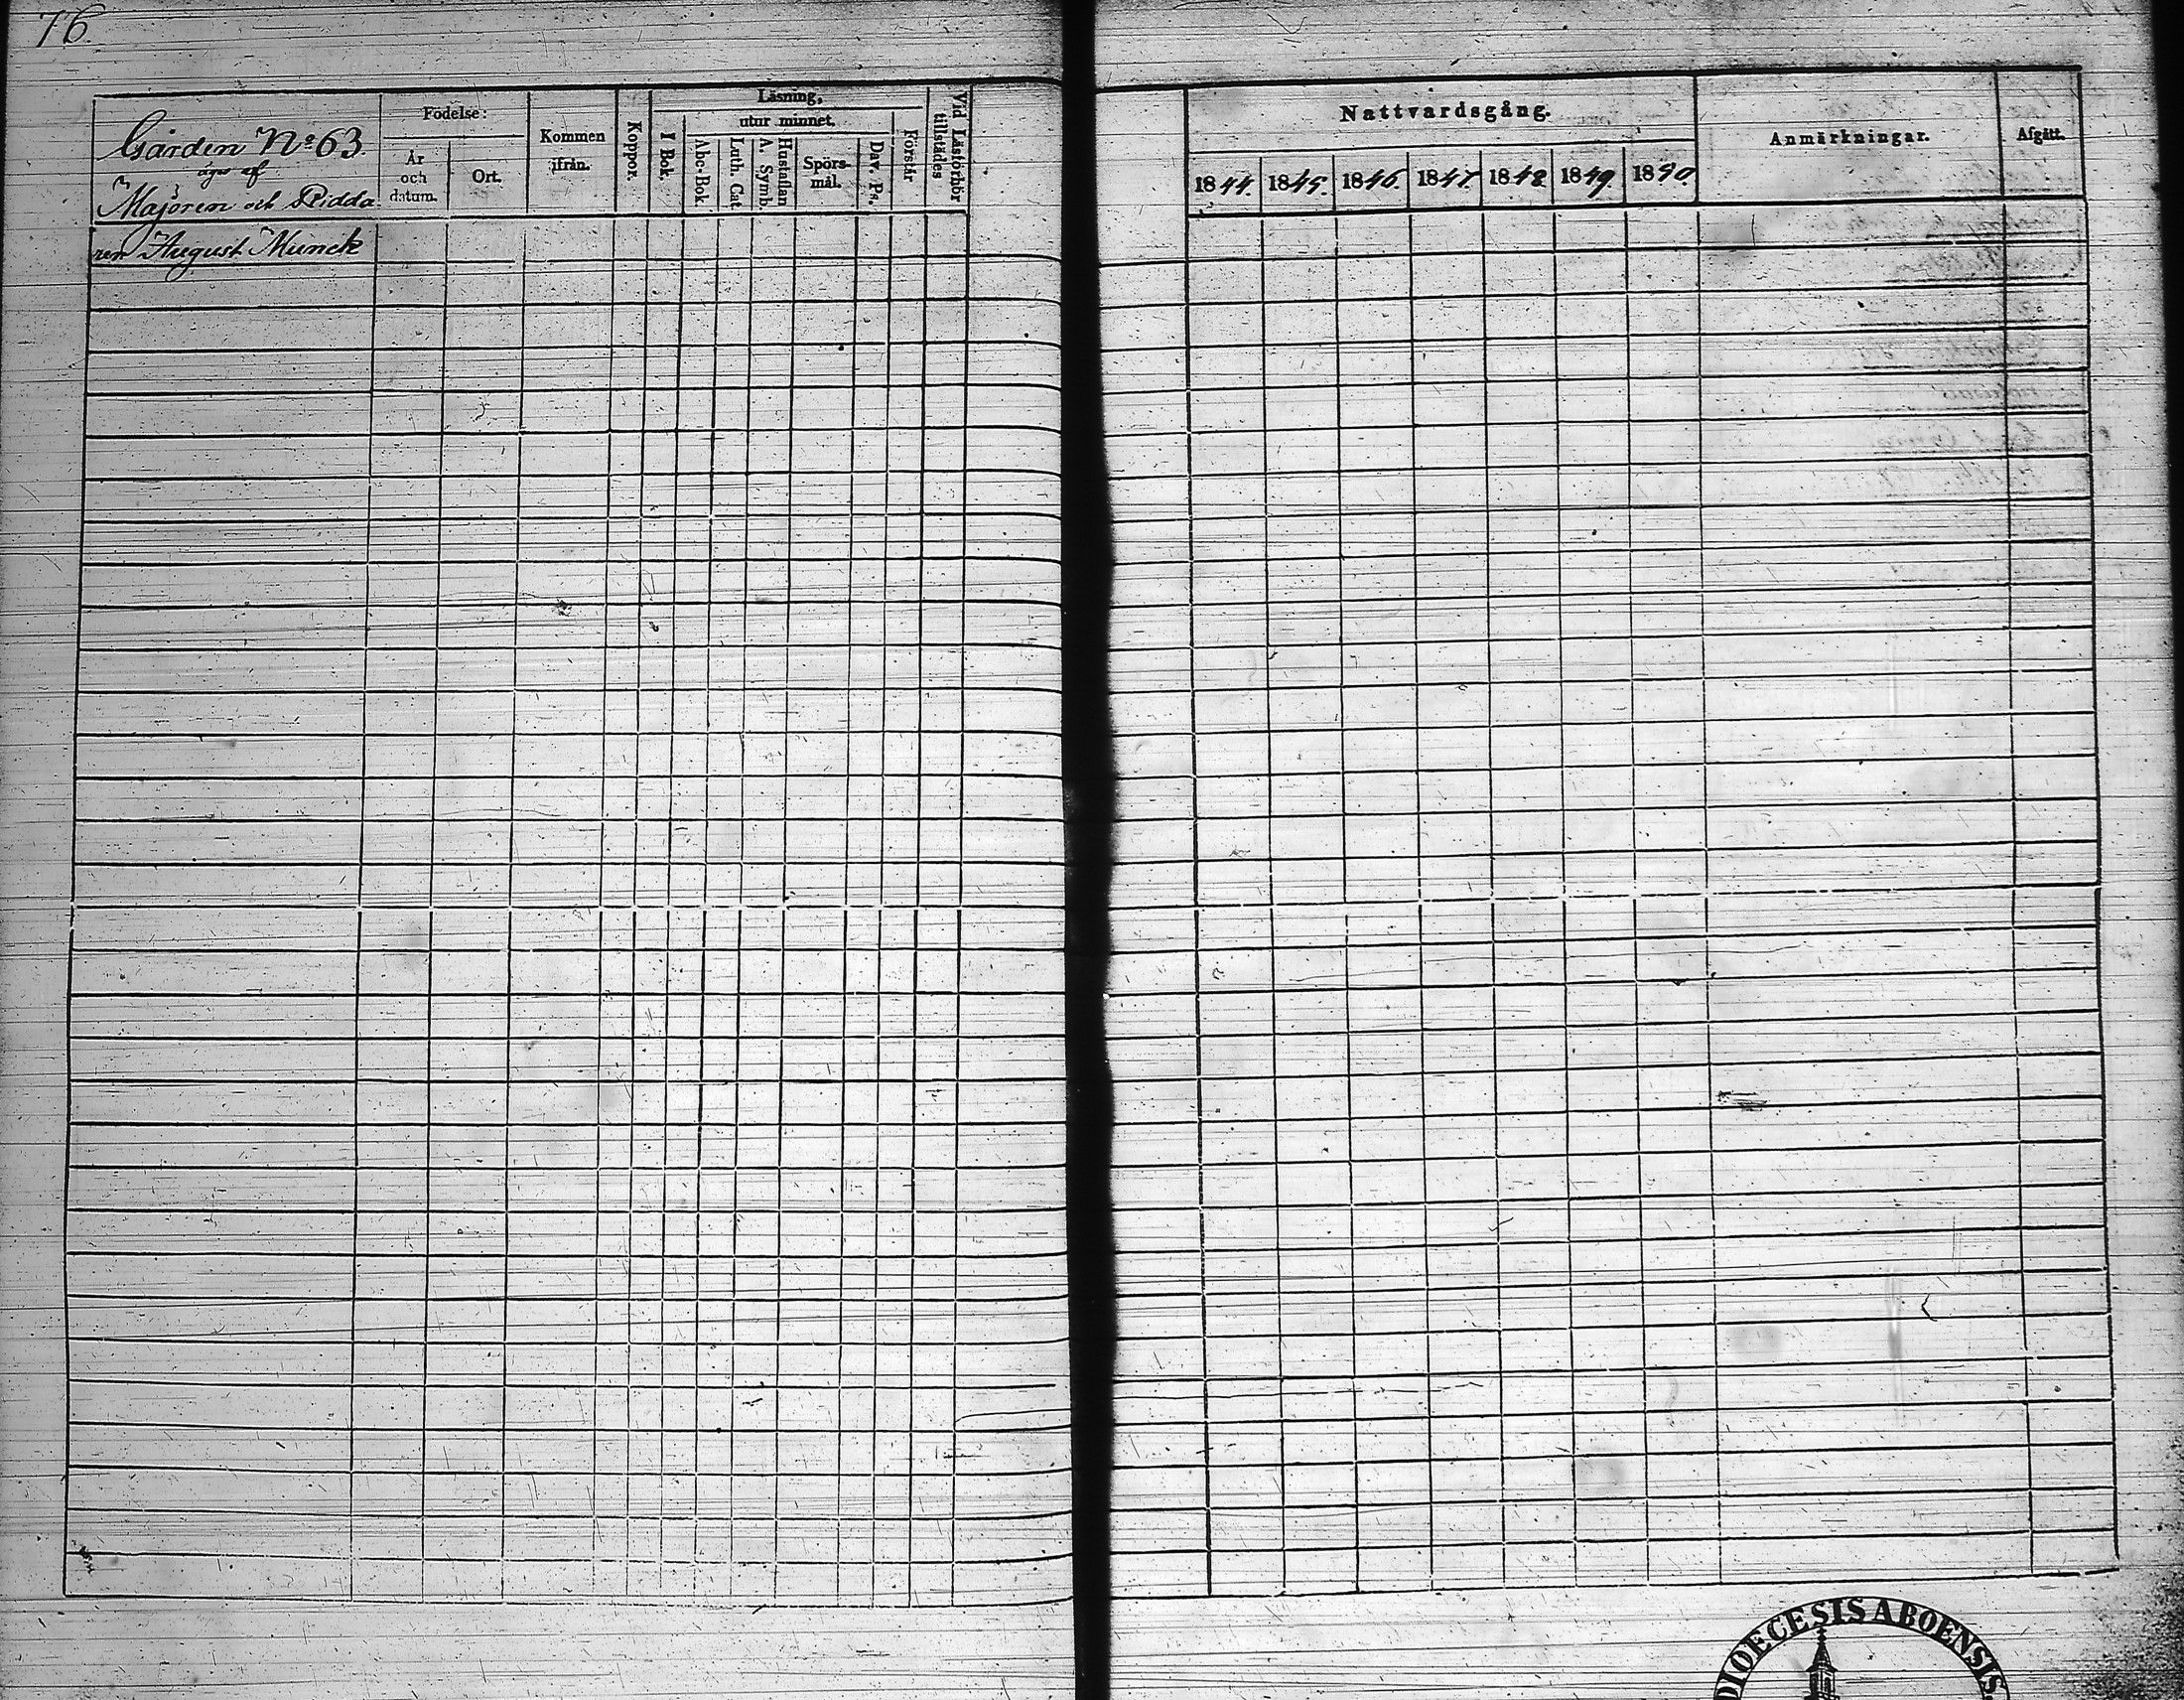 76.
Gården No 63.
äges af
Majoren och Ridda
ren August Munck
Födelse:
År
och
datum.
Ort.
Kommen
ifrån.
Koppor.
I Bok.
Läsning,
utur minnet.
Abc-Bok
Luth. Cat.
A. Symb.
Hustaflan
Spörs-
mål.
Dav. Ps.
Förstår
Vid Läsförhör
tillstädes
Nattvardsgång.
1844. 1845. 1846. 1847. 1848. 1849. 1850.
Anmärkningar.
Afgått.
DIOECESIS ABOENSIS